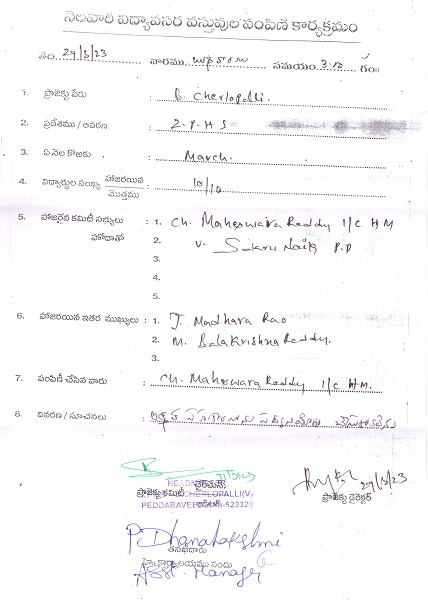 నెలవారీ విద్యావసర వస్తువుల పంపిణీ కార్యక్రమం
తేది. 29/3/23 వారము బుధవారం సమయం. 3:10 గం॥
1. ప్రాజెక్టు పేరు : B. Cherlopalli.
2. ప్రదేశము / ఆవరణ : Z.P.H.S
3. ఏ నెల కొఱకు : March.
4. విద్యార్థుల సంఖ్య హాజరయిన / మొత్తము : 10/10
5. హాజరైన కమిటీ సభ్యులు : 1. Ch. Maheswara Reddy I/C H M
హోదాతో 2. V. Sikru Naik P.D
3.
4.
5.
6. హాజరయిన ఇతర ముఖ్యులు : 1. J. Madhava Rao
2. M. Balakrishna Reddy.
3.
7. పంపిణీ చేసిన వారు : Ch. Maheswara Reddy I/C H.M.
8. వివరణ / సూచనలు :
ఛైర్మెన్
ప్రాజెక్టు కమిటీ
PEDDARAVEE
29/3/23
ప్రాజెక్టు డైరెక్టర్
P. Dhanalakshmi
తనిఖీదారు
హై కార్యాలయము నందు
Asst. Manager